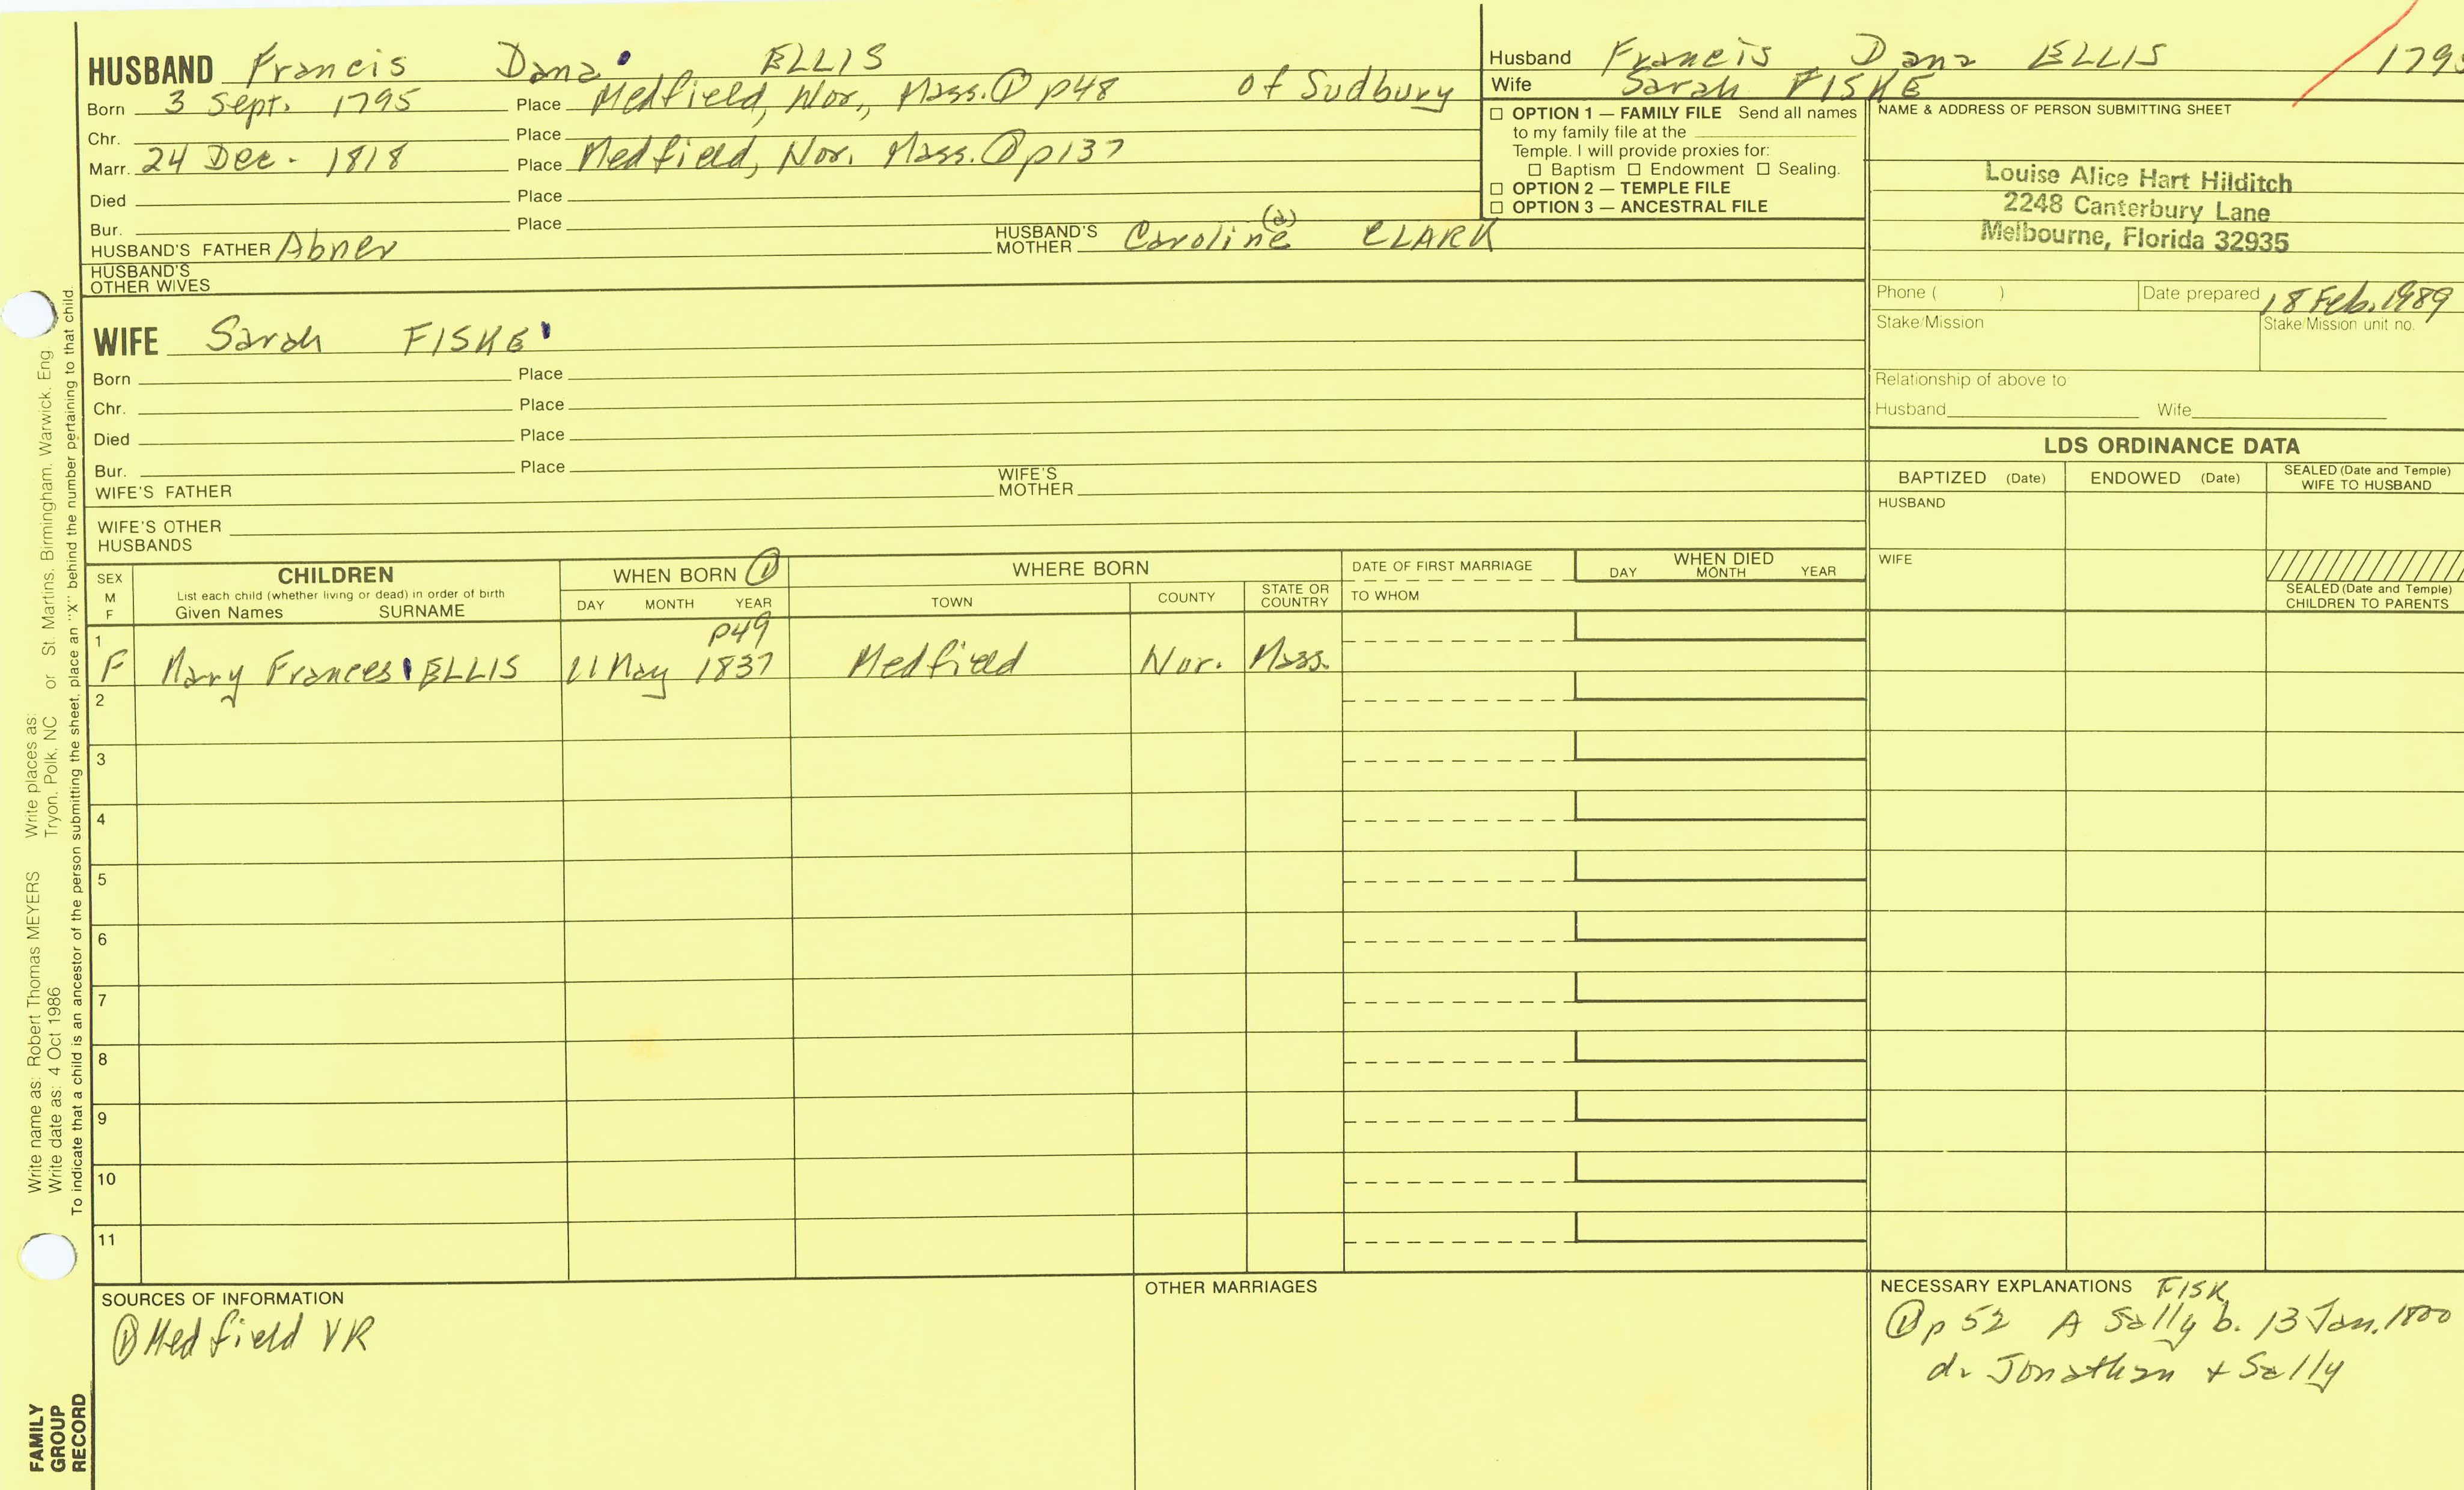 HUSBAND Francis Dana ELLIS
Born 3 Sept. 1795 Place Medfield, Nor., Mass. ① p48 of Sudbury
Chr. Place
Marr. 24 Dec. 1818 Place Medfield, Nor. Mass. ① p137
Died Place
Bur. Place
HUSBAND'S FATHER Abner HUSBAND'S MOTHER Caroline (a) CLARK
HUSBAND'S OTHER WIVES
Husband Francis Dana ELLIS / 179
Wife Sarah FISKE
☐ OPTION 1 — FAMILY FILE Send all names
to my family file at the
Temple. I will provide proxies for:
☐ Baptism ☐ Endowment ☐ Sealing.
☐ OPTION 2 — TEMPLE FILE
☐ OPTION 3 — ANCESTRAL FILE
NAME & ADDRESS OF PERSON SUBMITTING SHEET
Louise Alice Hart Hilditch
2248 Canterbury Lane
Melbourne, Florida 32935
Phone ( ) Date prepared 18 Feb. 1989
Stake/Mission Stake/Mission unit no.
Relationship of above to
Husband Wife
WIFE Sarah FISKE
Born Place
Chr. Place
Died Place
Bur. Place
WIFE'S FATHER WIFE'S MOTHER
WIFE'S OTHER HUSBANDS
LDS ORDINANCE DATA
BAPTIZED (Date) ENDOWED (Date) SEALED (Date and Temple) WIFE TO HUSBAND
HUSBAND
WIFE
SEALED (Date and Temple) CHILDREN TO PARENTS
SEX M F CHILDREN WHEN BORN ① WHERE BORN DATE OF FIRST MARRIAGE WHEN DIED
List each child (whether living or dead) in order of birth
Given Names SURNAME DAY MONTH YEAR TOWN COUNTY STATE OR COUNTRY TO WHOM DAY MONTH YEAR
1 p49
F Mary Frances ELLIS 11 May 1837 Medfield Nor. Mass.
2
3
4
5
6
7
8
9
10
11
SOURCES OF INFORMATION
① Medfield VR
OTHER MARRIAGES
NECESSARY EXPLANATIONS FISK
① p 52 A Sally b. 13 Jan. 1800
d. Jonathan + Sally
Write name as: Robert Thomas MEYERS Write places as: St. Martins, Birmingham, Warwick, Eng
Write date as: 4 Oct 1986 Tryon, Polk, NC or
To indicate that a child is an ancestor of the person submitting the sheet, place an "X" behind the number pertaining to that child.
FAMILY
GROUP
RECORD